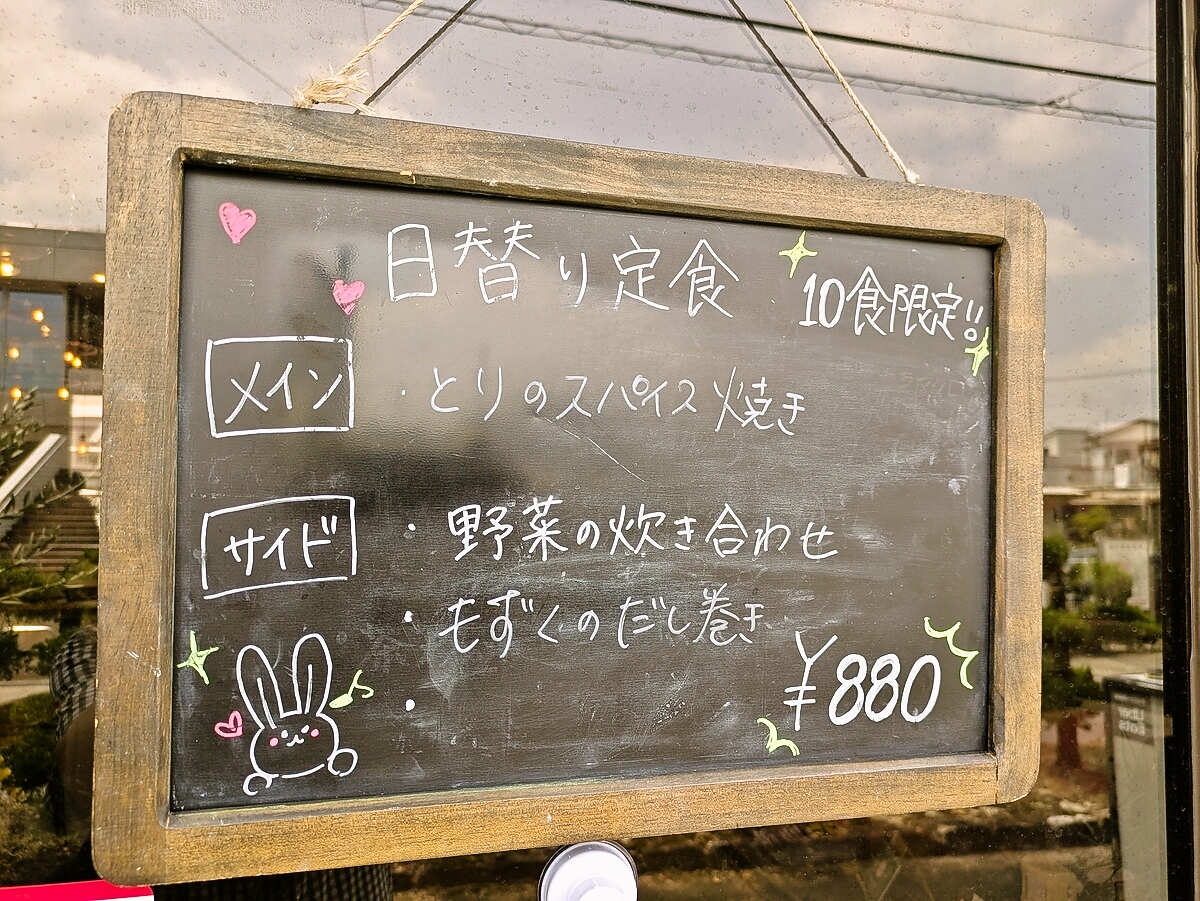 日替り定食
10食限定!!
メイン
・とりのスパイス焼き
サイド
・野菜の炊き合わせ
・もずくのだし巻き
・
¥880